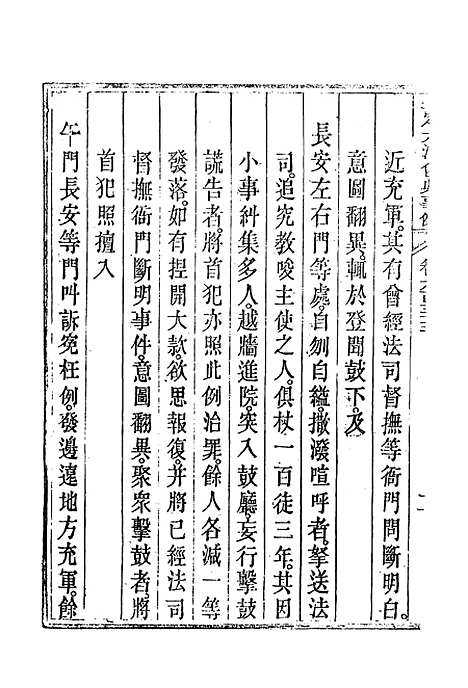 近充軍。其有曾經法司督撫等衙門問斷明白。
意圖翻異。輒於登聞鼓下。及
長安左右門等處。自刎自縊。撒潑喧呼者。拏送法
司。追究教唆主使之人。俱杖一百徒三年。其因
小事糾集多人。越牆進院。突入鼓廳。妄行擊鼓
謊告者。將首犯亦照此例治罪。餘人各減一等
發落。如有捏開大款。欲思報復。并將已經法司
督撫衙門斷明事件。意圖翻異。聚衆擊鼓者。將
首犯照擅入
午門長安等門叫訴寃枉例。發邊遠地方充軍。餘